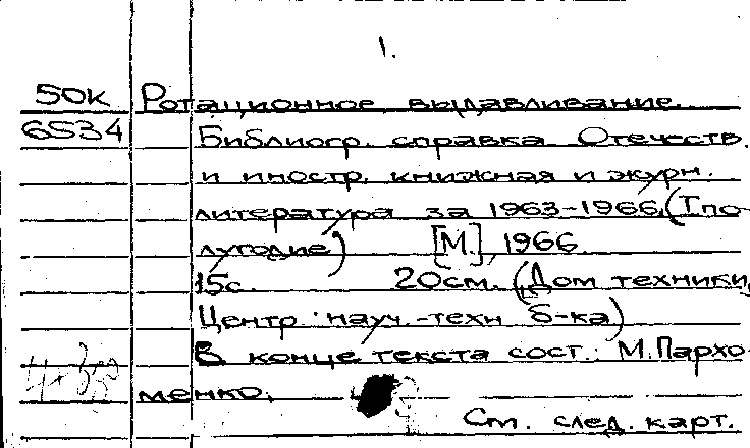 1.
50к Ротационное выдавливание.
6534 Библиогр. справка Отечеств.
и иностр. книжная и журн.
литература за 1963-1966 (I по-
лугодие) [М.], 1966.
15с. 20см. (Дом техники.
Центр. науч.-техн б-ка)
В конце текста сост.: М. Пархо-
менко.
См. след. карт.